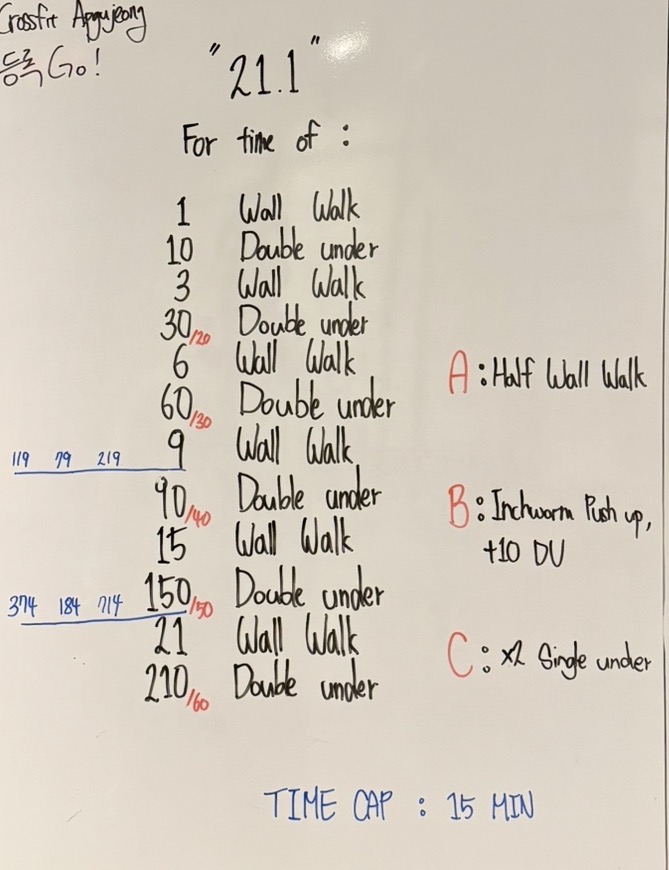 Crossfit Apgujeong
등록 Go!
"21.1"
For time of :
1 Wall Walk
10 Double under
3 Wall Walk
30/20 Double under
6 Wall Walk
60/30 Double under
119 79 219 9 Wall Walk
90/40 Double under
15 Wall Walk
374 184 714 150/50 Double under
21 Wall Walk
210/60 Double under
A : Half Wall Walk
B : Inchworm Push up,
+10 DU
C : x2 Single under
TIME CAP : 15 MIN